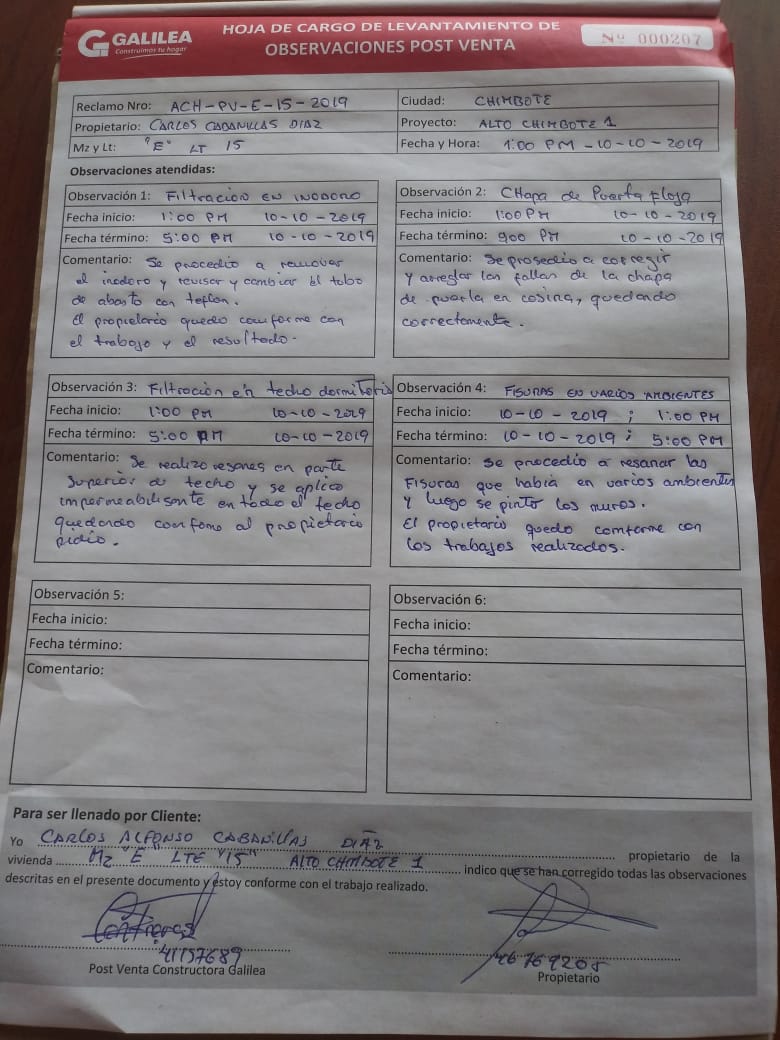 GALILEA
Construimos tu hogar
HOJA DE CARGO DE LEVANTAMIENTO DE
OBSERVACIONES POST VENTA
Nº 000207
Reclamo Nro: ACH-PV-E-15-2019
Ciudad: CHIMBOTE
Propietario: CARLOS CABANILLAS DIAZ
Proyecto: ALTO CHIMBOTE 1
Mz y Lt: "E" LT 15
Fecha y Hora: 1:00 PM - 10-10-2019
Observaciones atendidas:
Observación 1: Filtración EN INODORO
Fecha inicio: 1:00 PM 10-10-2019
Fecha término: 5:00 PM 10-10-2019
Comentario: Se procedio a remover
el inodoro y revisar y cambiar el tubo
de abasto con teflon.
El propietario quedo conforme con
el trabajo y el resultado.
Observación 2: CHapa de Puerta floja
Fecha inicio: 1:00 PM 10-10-2019
Fecha término: 900 PM 10-10-2019
Comentario: Se prosedio a corregir
y arreglar las fallas de la chapa
de puerta en cosina, quedando
correctamente.
Observación 3: Filtración en techo dormitorio
Fecha inicio: 1:00 PM 10-10-2019
Fecha término: 5:00 PM 10-10-2019
Comentario: Se realizo resanes en parte
Superior de techo y se aplico
impermeabilisante en todo el techo
quedando confome al propietario
pidio.
Observación 4: FISURAS EN VARIOS AMBIENTES
Fecha inicio: 10-10-2019 ; 1:00 PM
Fecha término: 10-10-2019 ; 5:00 PM
Comentario: Se procedio a resanar las
Fisuras que había en varios ambientes
y luego se pinto los muros.
El propietario quedo comforme con
los trabajos realizados.
Observación 5:
Fecha inicio:
Fecha término:
Comentario:
Observación 6:
Fecha inicio:
Fecha término:
Comentario:
Para ser llenado por Cliente:
Yo CARLOS ALFONSO CABANILLAS DIAZ propietario de la
vivienda Mz "E" LTE "15" ALTO CHIMBOTE 1 indico que se han corregido todas las observaciones
descritas en el presente documento y estoy conforme con el trabajo realizado.
Contreras
41157689
Post Venta Constructora Galilea
46769205
Propietario